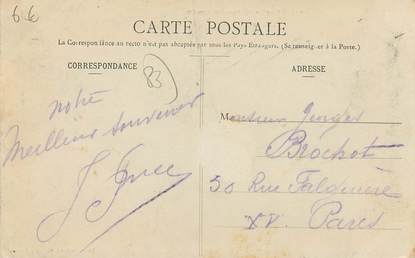 66
CARTE POSTALE
La Correspondance au recto n'est pas acceptée par tous les Pays Etrangers. (Se renseigner à la Poste.)
CORRESPONDANCE
83
ADRESSE
notre
Meilleur souvenir
Monsieur Georges
Brochot
50 Rue
XV. Paris